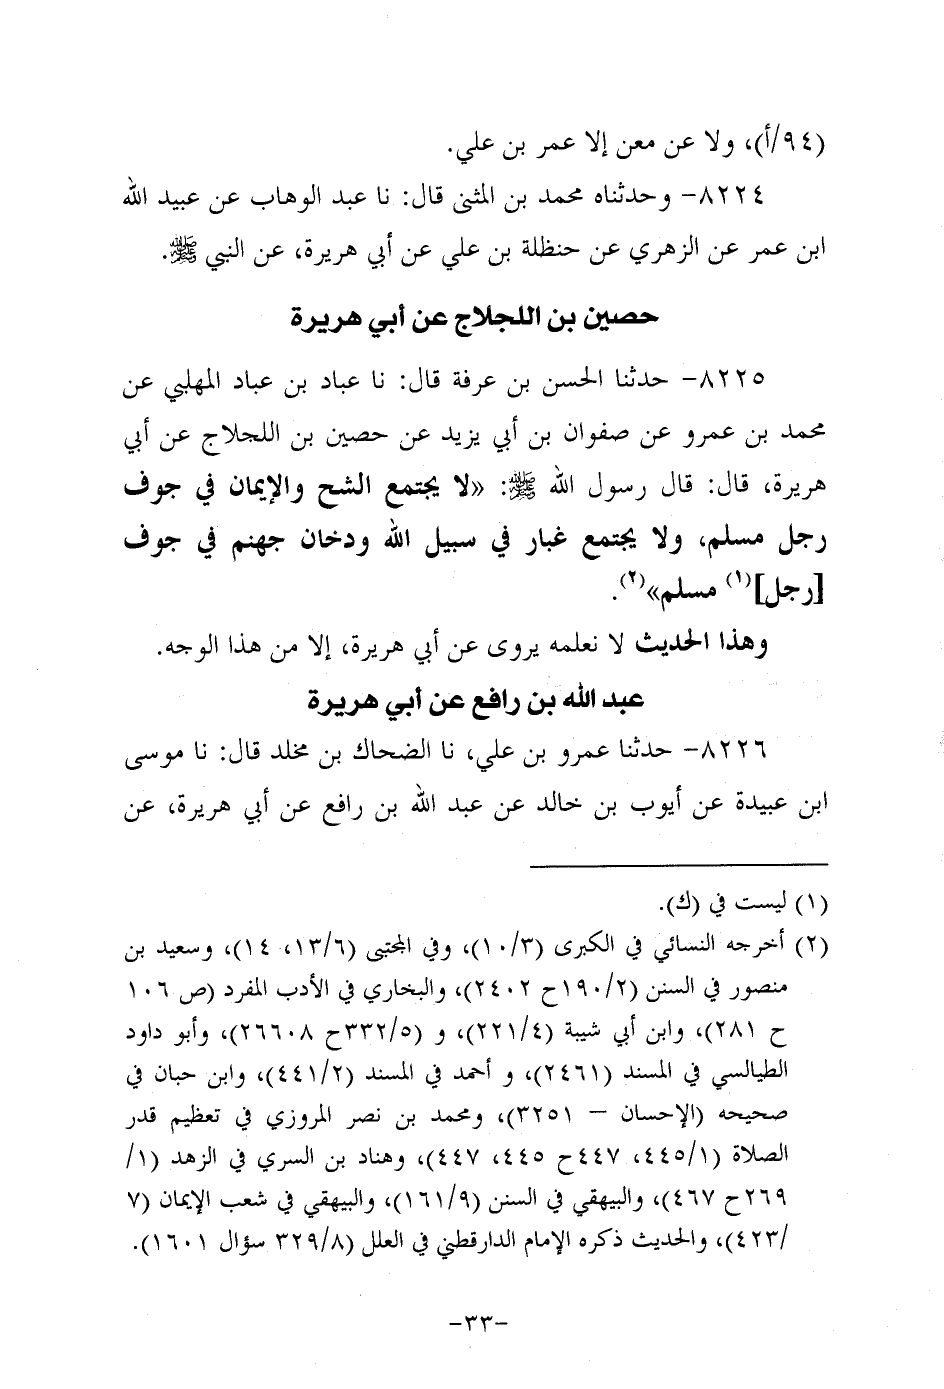 (٩٤/أ)، ولا عن معن إلا عمر بن علي.
٨٢٢٤- وحدثناه محمد بن المثنى قال: نا عبد الوهاب عن عبيد الله
ابن عمر عن الزهري عن حنظلة بن علي عن أبي هريرة، عن النبي ﷺ.
حصين بن اللجلاج عن أبي هريرة
٨٢٢٥- حدثنا الحسن بن عرفة قال: نا عباد بن عباد المهلبي عن
محمد بن عمرو عن صفوان بن أبي يزيد عن حصين بن اللجلاج عن أبي
هريرة، قال: قال رسول الله ﷺ: «لا يجتمع الشح والإيمان في جوف
رجل مسلم، ولا يجتمع غبار في سبيل الله ودخان جهنم في جوف
[رجل](١) مسلم»(٢).
وهذا الحديث لا نعلمه يروى عن أبي هريرة، إلا من هذا الوجه.
عبد الله بن رافع عن أبي هريرة
٨٢٢٦- حدثنا عمرو بن علي، نا الضحاك بن مخلد قال: نا موسى
ابن عبيدة عن أيوب بن خالد عن عبد الله بن رافع عن أبي هريرة، عن
(١) ليست في (ك).
(٢) أخرجه النسائي في الكبرى (١٠/٣)، وفي المجتبى (١٣/٦، ١٤)، وسعيد بن
منصور في السنن (١٩٠/٢ح ٢٤٠٢)، والبخاري في الأدب المفرد (ص ١٠٦
ح ٢٨١)، وابن أبي شيبة (٢٢١/٤)، و (٣٣٢/٥ح ٢٦٦٠٨)، وأبو داود
الطيالسي في المسند (٢٤٦١)، و أحمد في المسند (٤٤١/٢)، وابن حبان في
صحيحه (الإحسان – ٣٢٥١)، ومحمد بن نصر المروزي في تعظيم قدر
الصلاة (٤٤٥/١، ٤٤٧ح ٤٤٥، ٤٤٧)، وهناد بن السري في الزهد (١/
٢٦٩ح ٤٦٧)، والبيهقي في السنن (١٦١/٩)، والبيهقي في شعب الإيمان (٧
/٤٢٣)، والحديث ذكره الإمام الدارقطني في العلل (٣٢٩/٨ سؤال ١٦٠١).
-٣٣-